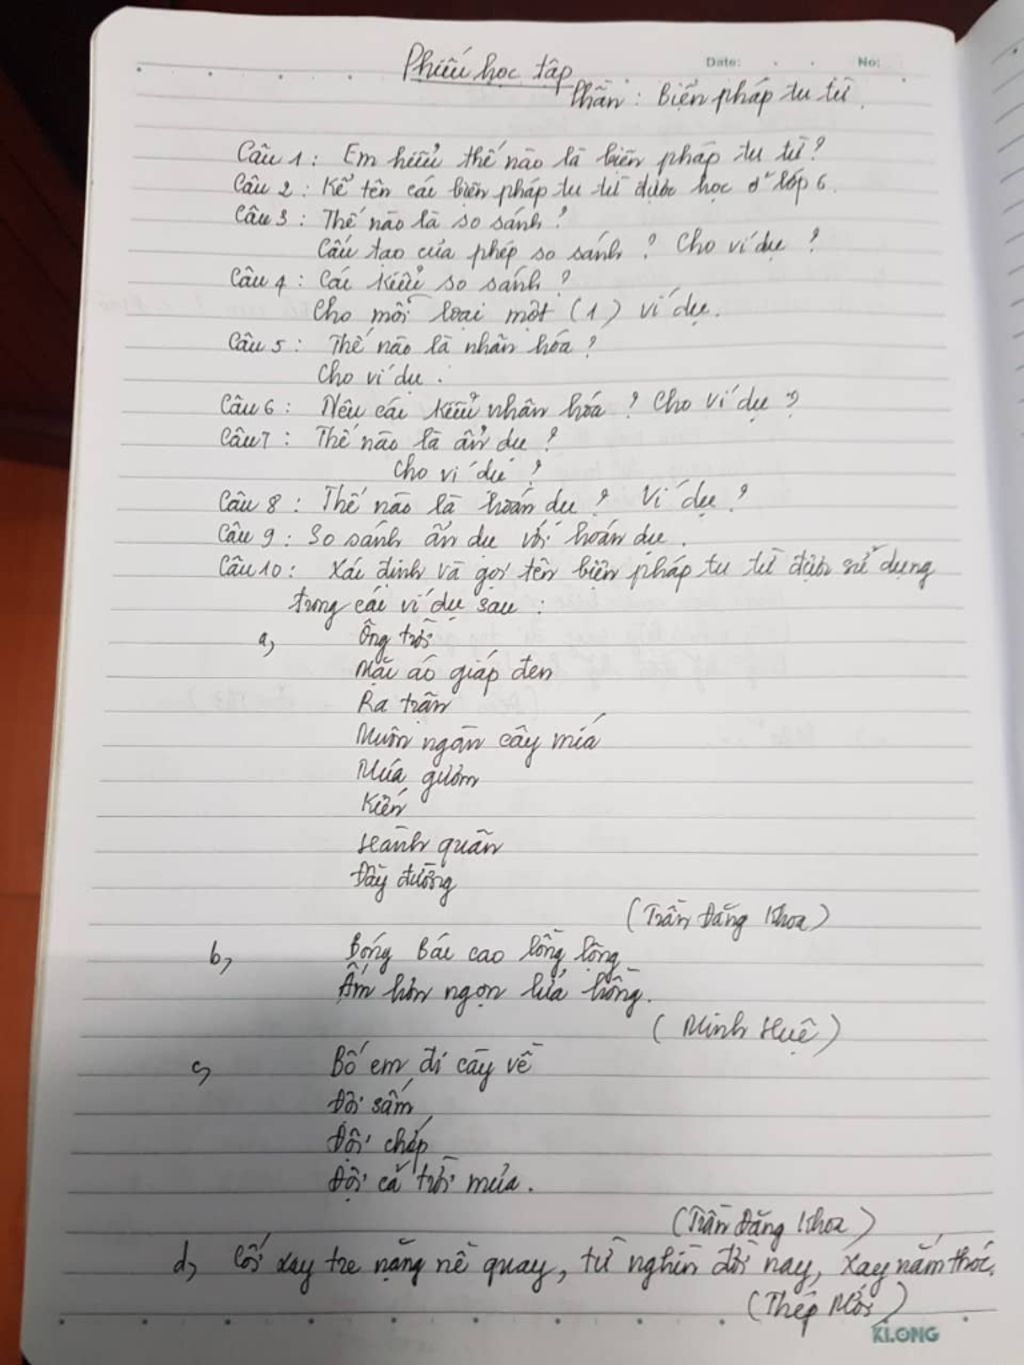 Phiếu học tập
Date: No:
Phần: Biện pháp tu từ.
Câu 1: Em hiểu thế nào là biện pháp tu từ?
Câu 2: Kể tên các biện pháp tu từ được học ở lớp 6.
Câu 3: Thế nào là so sánh?
Cấu tạo của phép so sánh? Cho ví dụ?
Câu 4: Các kiểu so sánh?
Cho mỗi loại một (1) ví dụ.
Câu 5: Thế nào là nhân hóa?
Cho ví dụ.
Câu 6: Nêu các kiểu nhân hóa? Cho ví dụ?
Câu 7: Thế nào là ẩn dụ?
Cho ví dụ?
Câu 8: Thế nào là hoán dụ? Ví dụ?
Câu 9: So sánh ẩn dụ với hoán dụ.
Câu 10: Xác định và gọi tên biện pháp tu từ được sử dụng
trong các ví dụ sau:
a, Ông trời
Mặc áo giáp đen
Ra trận
Muôn ngàn cây mía
Múa gươm
Kiến
Hành quân
Đầy đường
(Trần Đăng Khoa)
b, Bóng Bác cao lồng lộng
Ấm hơn ngọn lửa hồng.
(Minh Huệ)
c, Bố em đi cày về
Đội sấm
Đội chớp
Đội cả trời mưa.
(Trần Đăng Khoa)
d, Cối xay tre nặng nề quay, từ nghìn đời nay, xay nắm thóc.
(Thép Mới)
KLONG